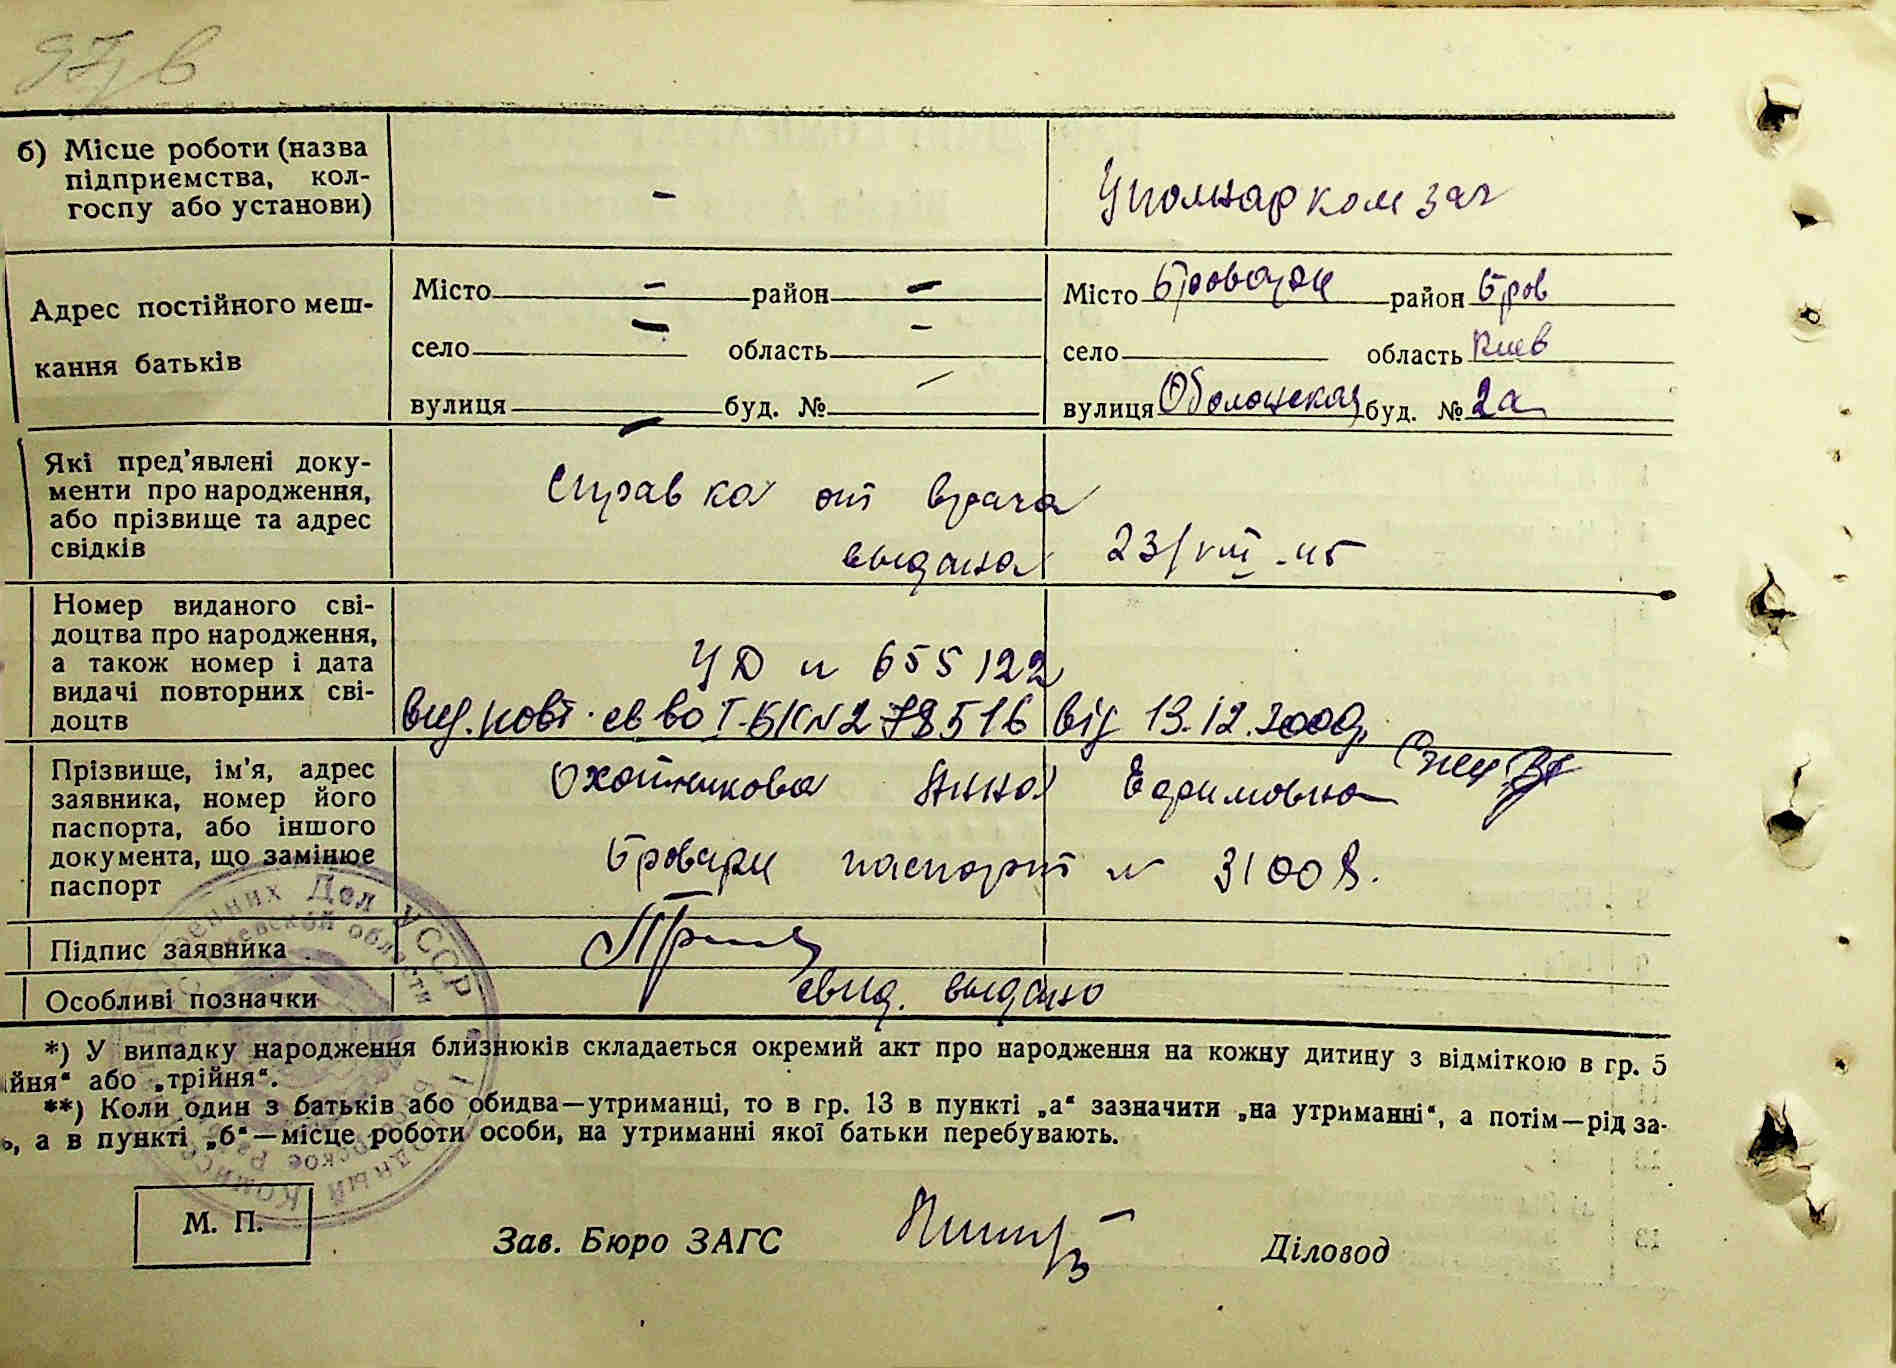 97 в
б) Місце роботи (назва
підприємства, кол-
госпу або установи)
-
Уполнаркомзаг
Адрес постійного меш-
кання батьків
Місто - район - Місто Бровары район Бров
село - область - село область Киев
вулиця - буд. № - вулиця Оболонская буд. № 2а
Які пред'явлені доку-
менти про народження,
або прізвище та адрес
свідків
Справка от врача
выдана 23/VIII-45
Номер виданого сві-
доцтва про народження,
а також номер і дата
видачі повторних сві-
доцтв
УД N 655122
вид. повт. св во І-БК N 278516 від 13.12.2000р.
Прізвище, ім'я, адрес
заявника, номер його
паспорта, або іншого
документа, що замінює
паспорт
Охотникова Анна Ефимовна
Бровары паспорт N 31008.
Підпис заявника
Особливі позначки
свид. выдано
*) У випадку народження близнюків складається окремий акт про народження на кожну дитину з відміткою в гр. 5
ійня“ або „трійня“.
**) Коли один з батьків або обидва—утриманці, то в гр. 13 в пункті „а“ зазначити „на утриманні“, а потім—рід за-
ь, а в пункті „б“—місце роботи особи, на утриманні якої батьки перебувають.
М. П.
Зав. Бюро ЗАГС
Діловод